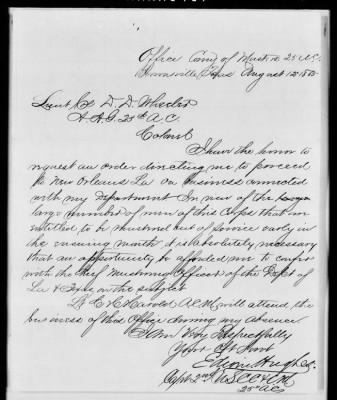 Office Com'y of Must'r 25 A.C.
Brownsville Texas August 12 1865
Lieut Col D. D. Wheeler
A.A.G. 25th A.C.
Colonel
I have the honor to
request an order directing me to proceed
to New Orleans La on business connected
with my Department In view of the
large number of men of this Corps that are
entitled to be mustered out of service early in
the ensuing month, it is absolutely necessary
that an opportunity be afforded me to confer
with the Chief Mustering Officer of the Dept of
La & Texas on the subject
Lt C. R. Harold A.C.M. will attend the
business of this Office during my absence
I am Very Respectfully
Your Obt Servt
Edson Hughes
Capt 2nd U.S.C.C. & C.M.
25th A.C.